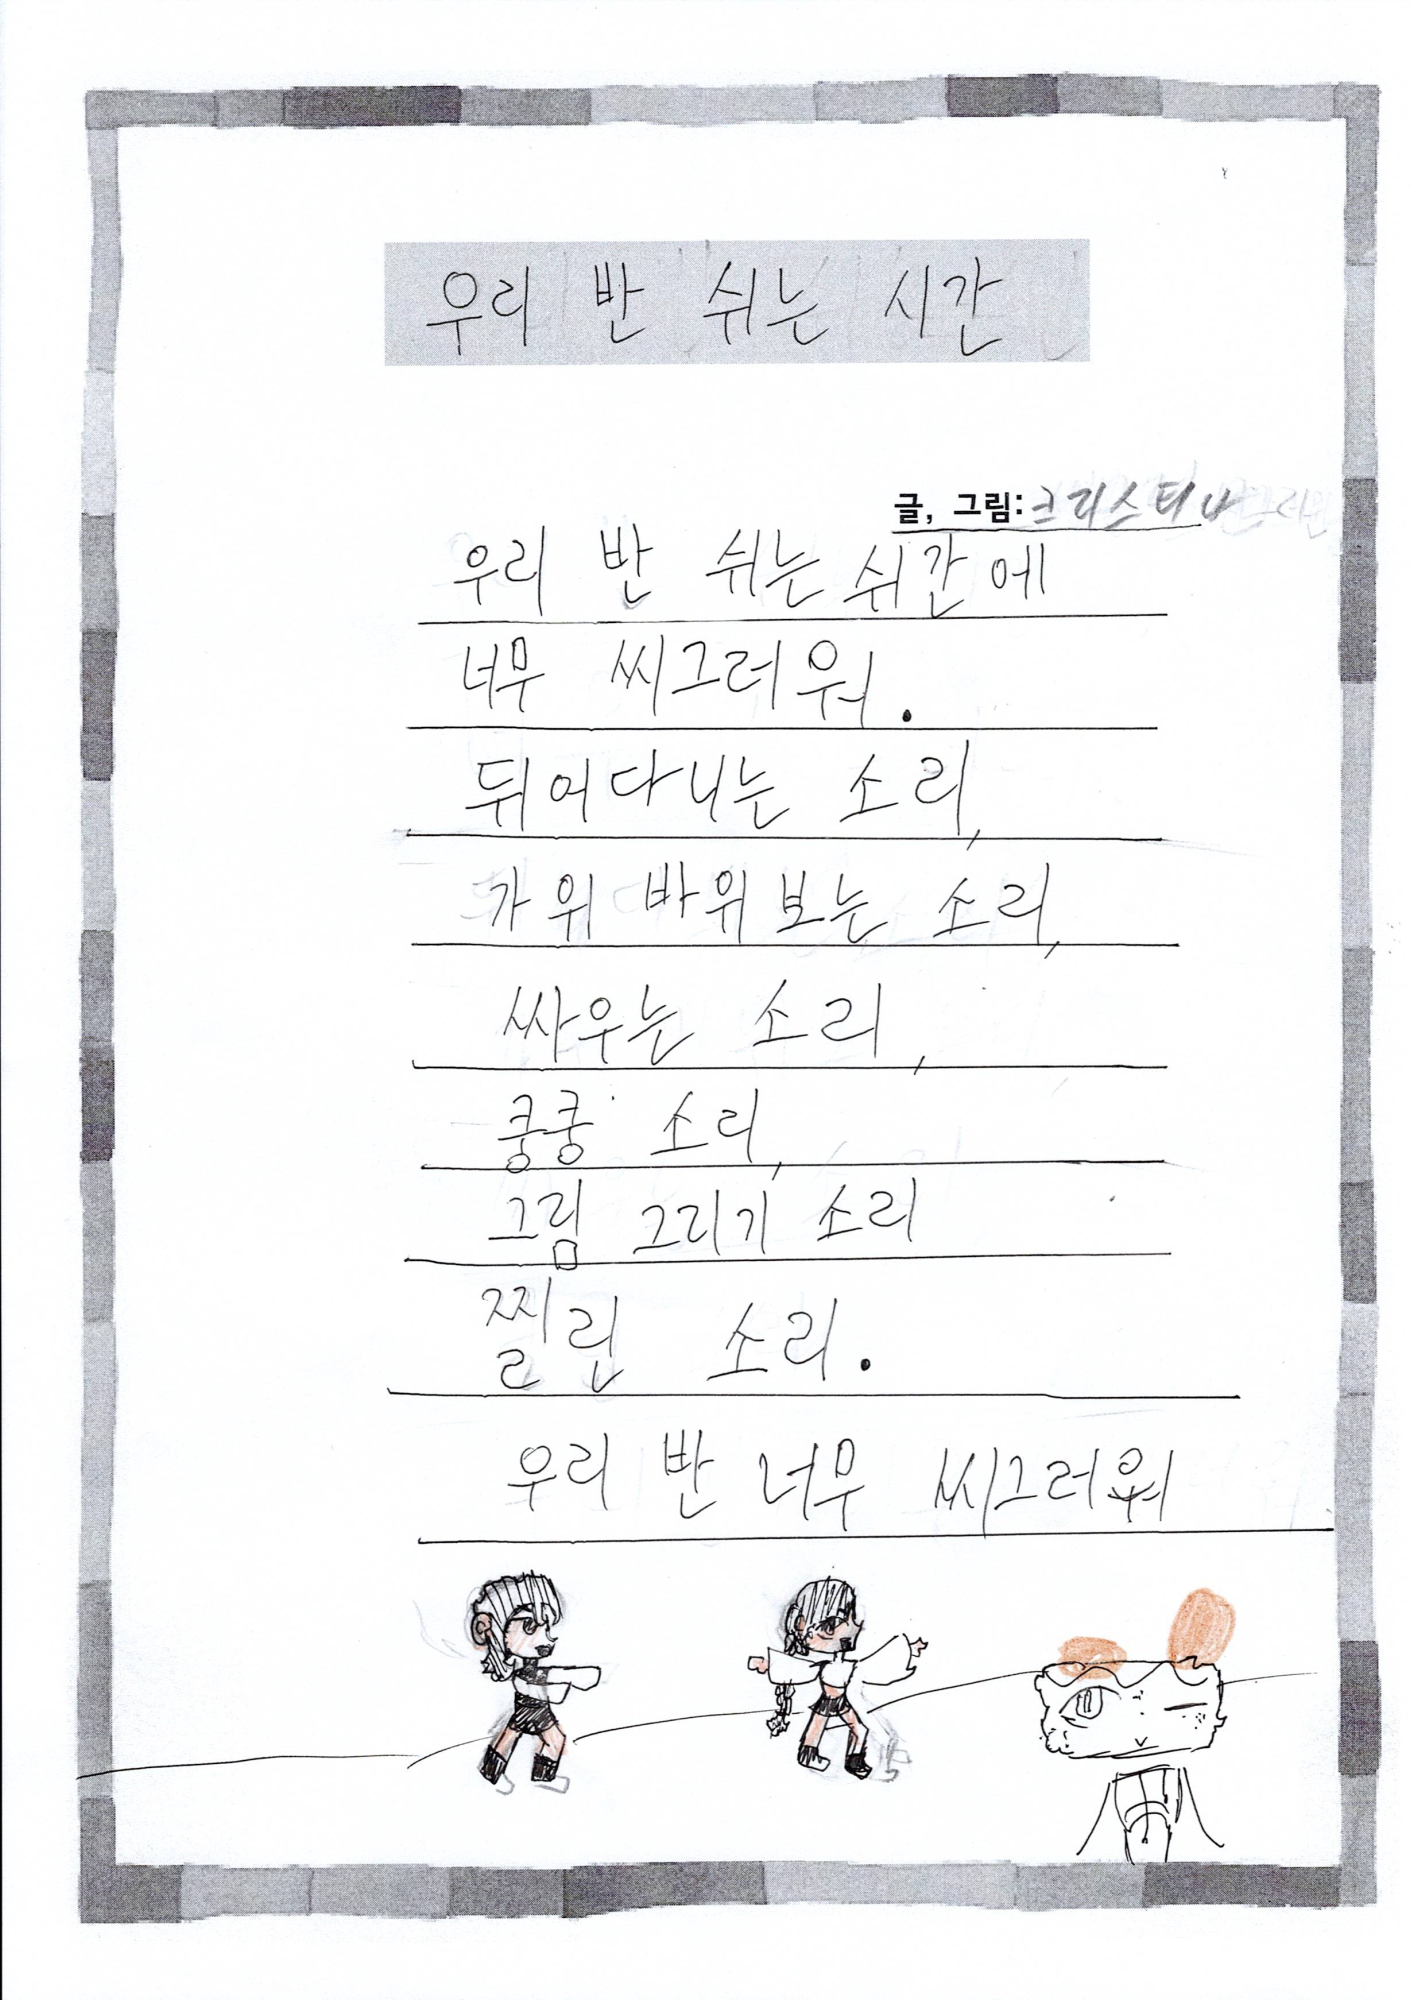 우리 반 쉬는 시간
글, 그림: 크리스티나
우리 반 쉬는 쉬간에
너무 씨그러워.
뛰어다니는 소리,
가위 바위 보는 소리,
싸우는 소리,
쿵쿵 소리,
그림 그리기 소리
찔린 소리.
우리 반 너무 씨그러워